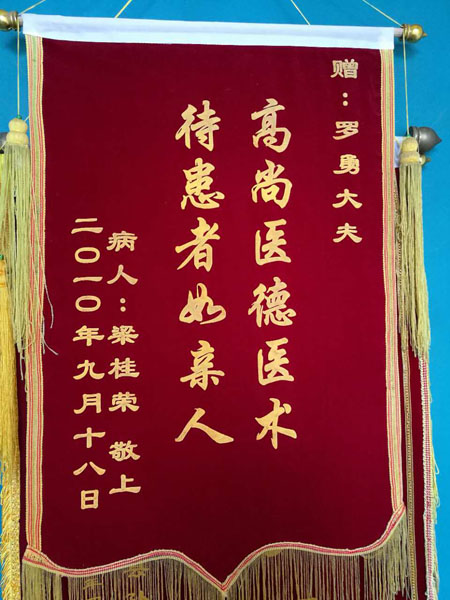 赠：罗勇大夫
高尚医德医术
待患者如亲人
病人：梁桂荣 敬上
二〇一〇年九月十八日